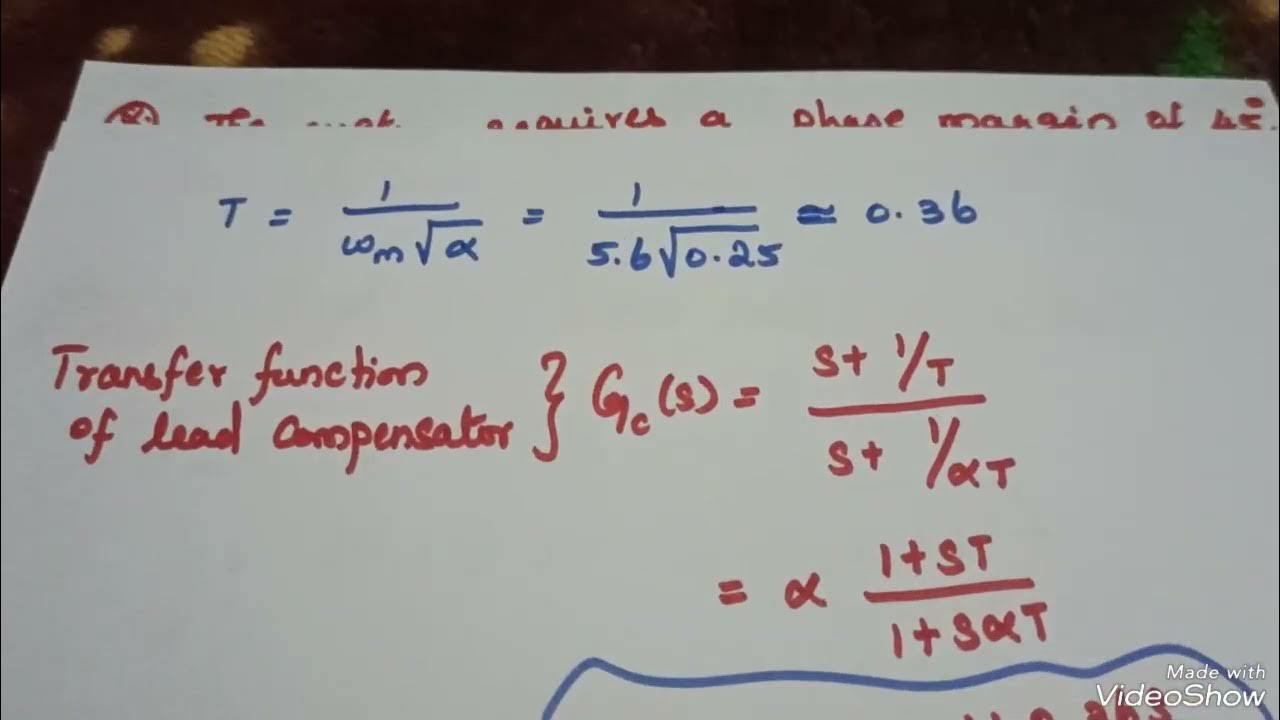 requires a phase margin of 45°.
T = 1/(ωm√α) = 1/(5.6√0.25) ≃ 0.36
Transfer function
of lead compensator } Gc(s) = (s + 1/T)/(s + 1/αT)
= α (1+sT)/(1+sαT)
Made with
VideoShow